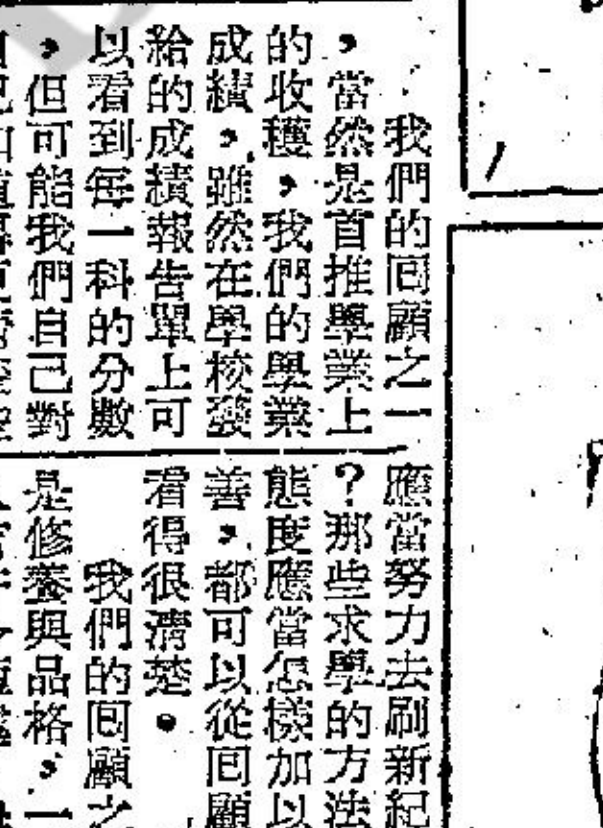 我們的回顧之一
，當然是首推學業上
的收穫，我們的學業
成績，雖然在學校發
給的成績報告單上可
以看到每一科的分數
，但可能我們自己對
應當努力去刷新紀
？那些求學的方法
態度應當怎樣加以
善，都可以從回顧
看得很清楚。
我們的回顧之
是修養與品格，一